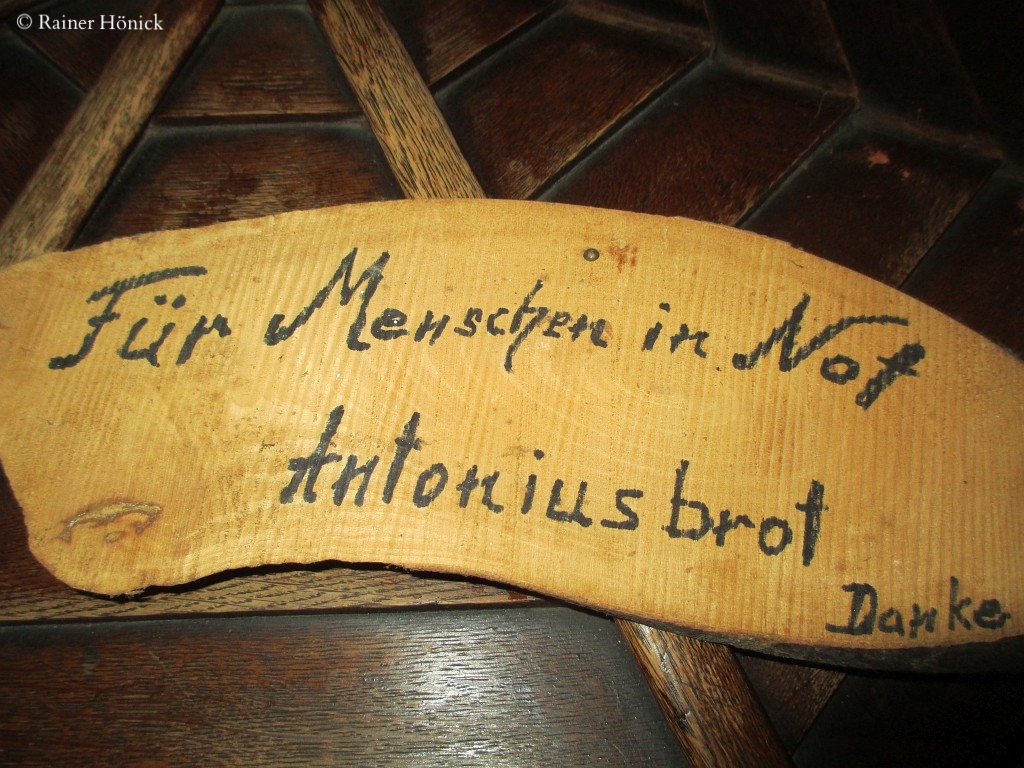 © Rainer Hönick
Für Menschen in Not
Antoniusbrot
Danke